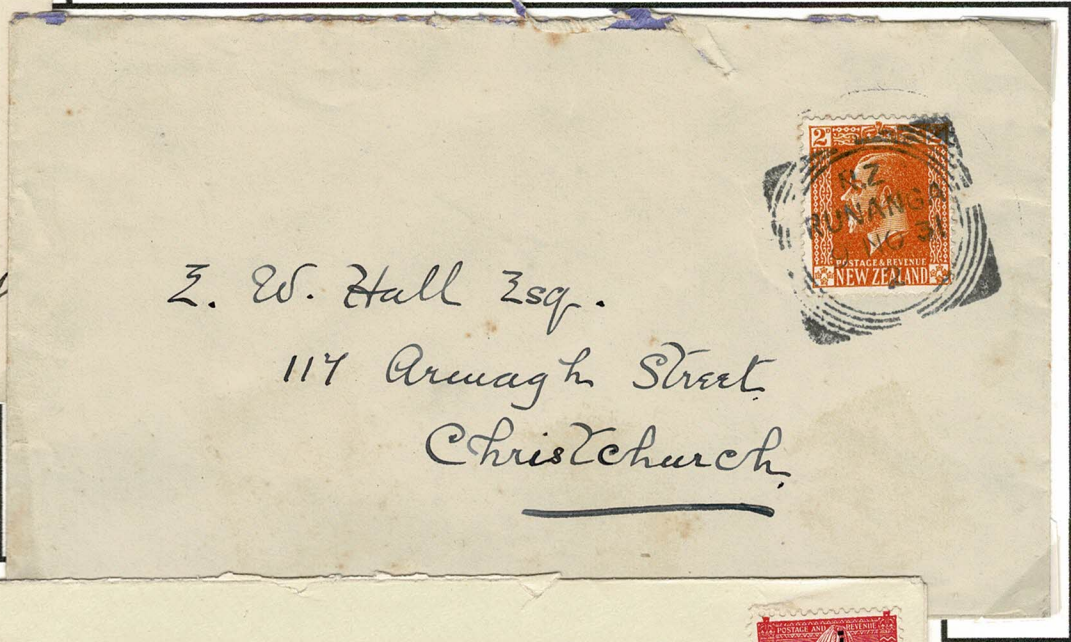 2D
N.Z
RUNANGA
NO 31
2
POSTAGE & REVENUE
NEW ZEALAND
E. W. Hall Esq.
117 Armagh Street
Christchurch
POSTAGE AND REVENUE